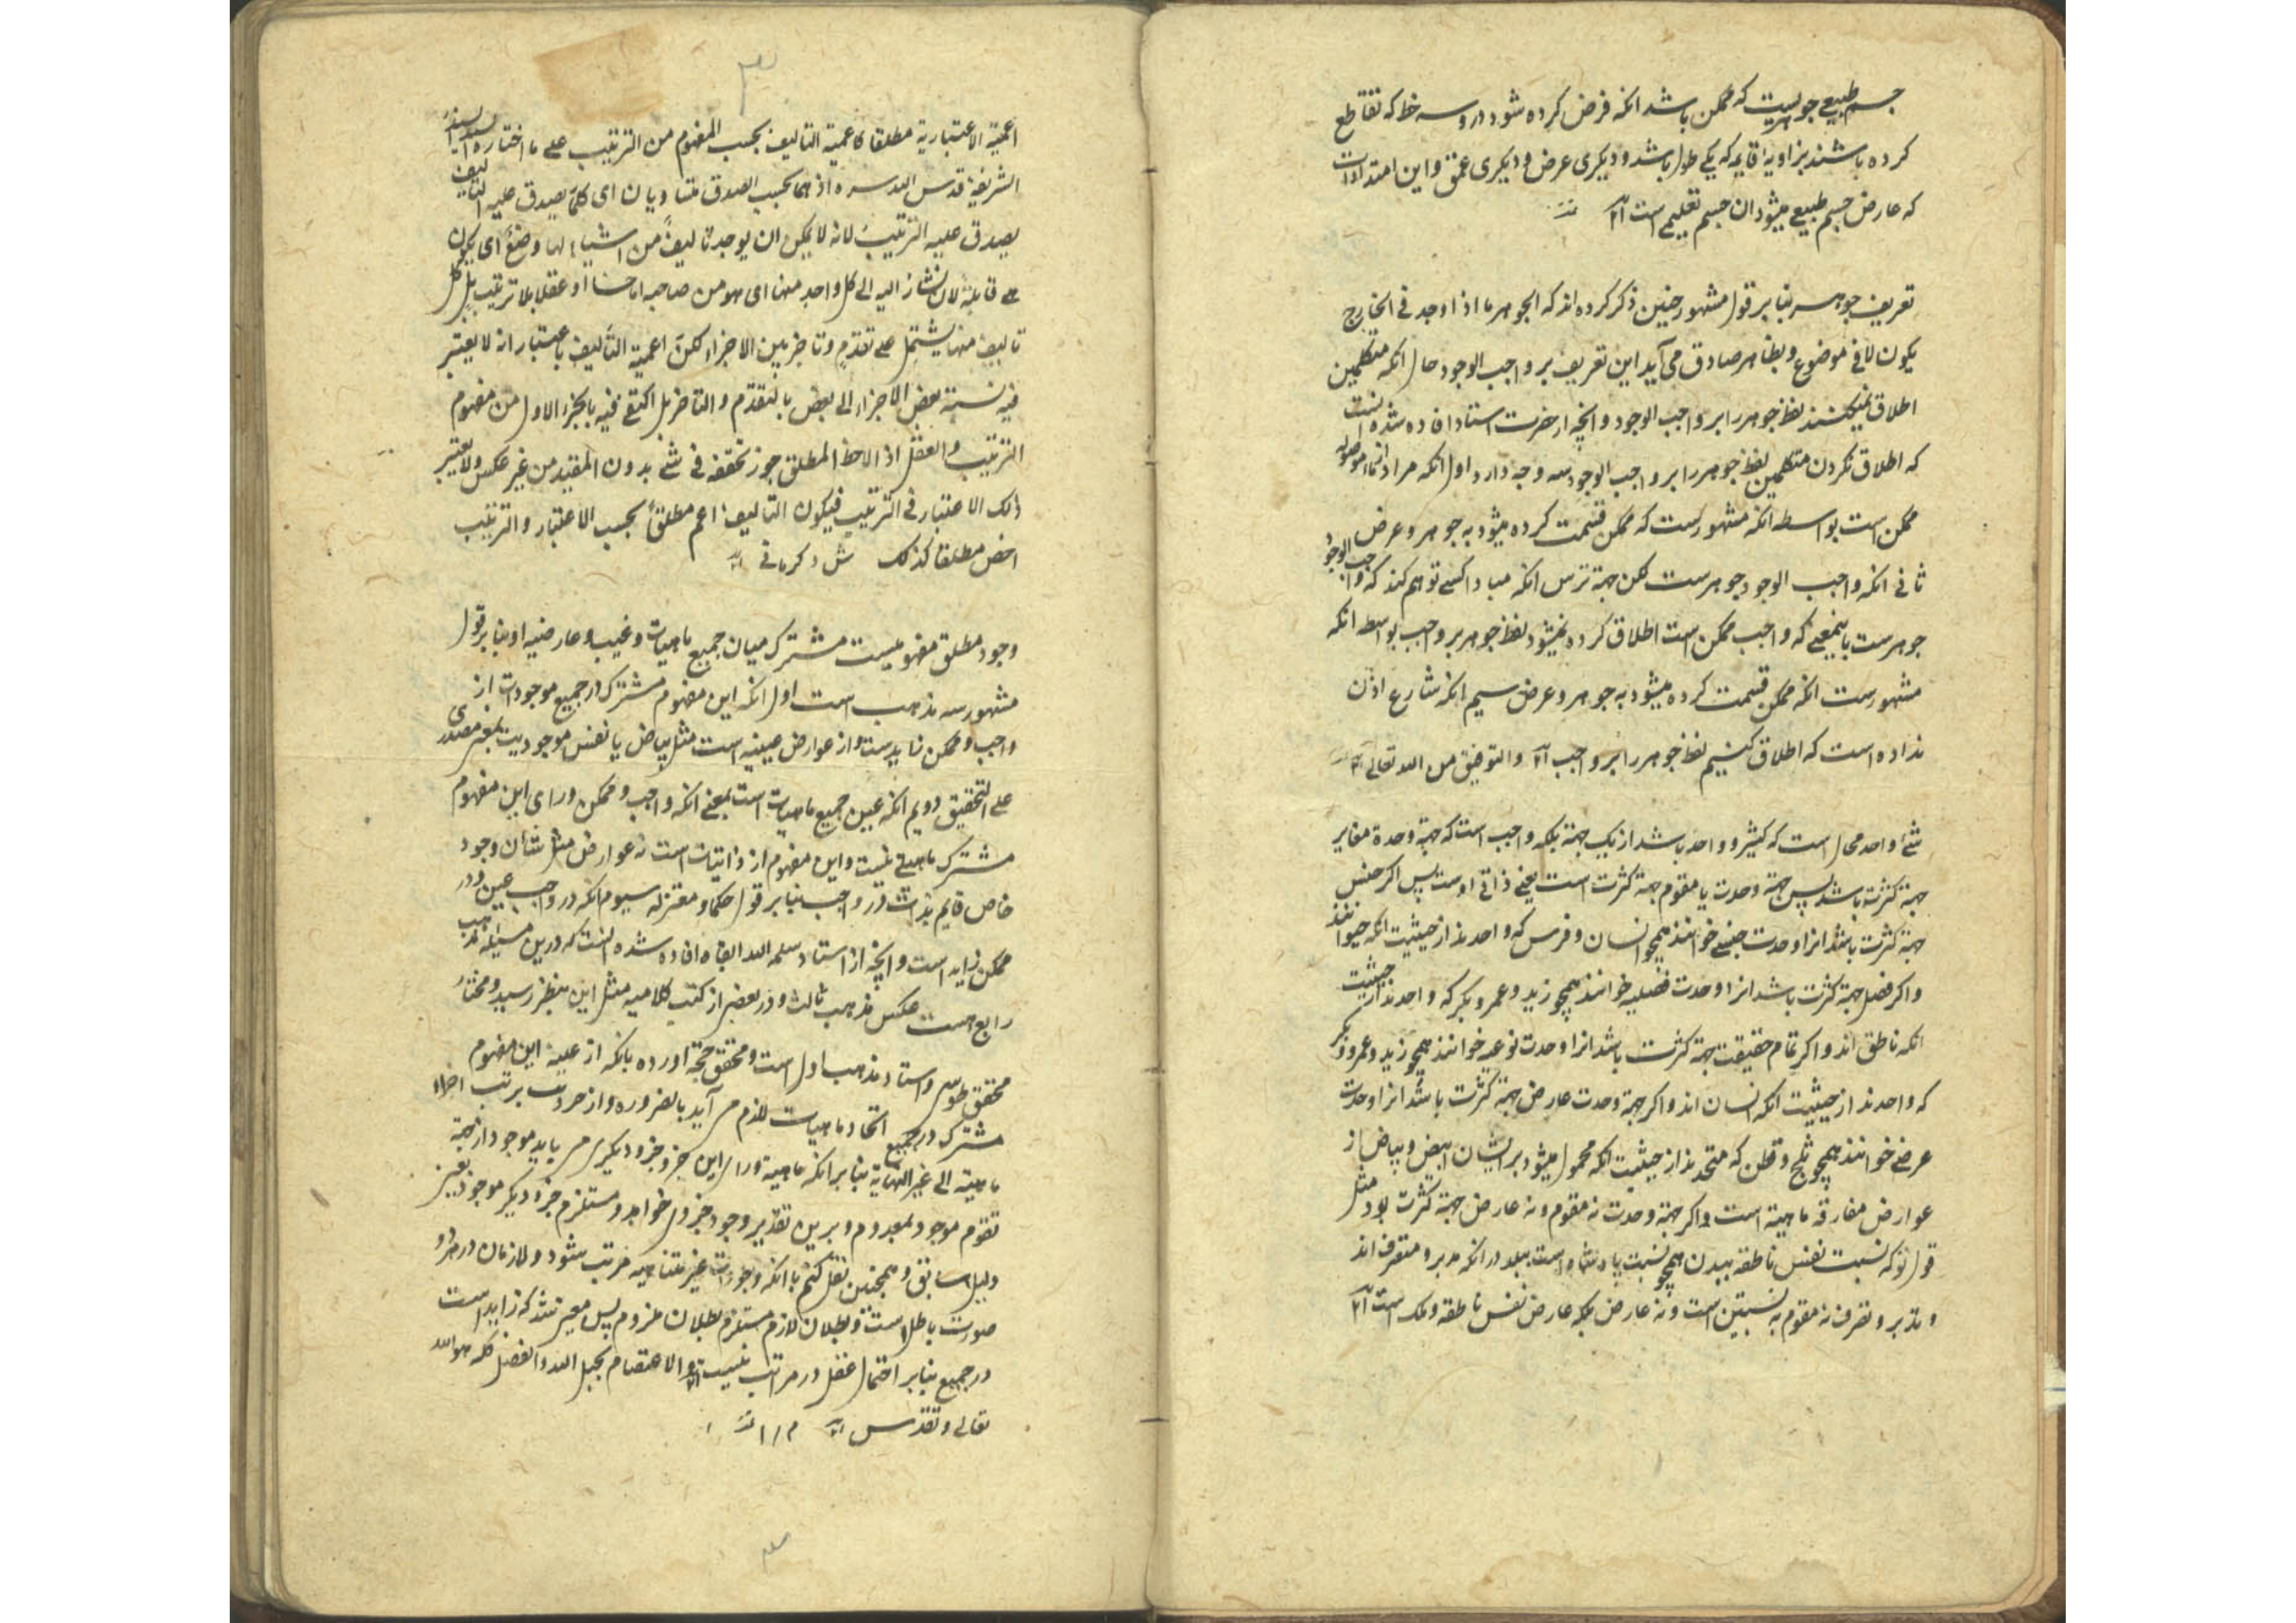 جسم طبیعی جوهریست که ممکن باشد انکه فرض کرده شود درو سه خط که تقاطع
کرده باشند بزاویهٔ قایمه که یکی طول باشد و دیکری عرض و دیکری عمق و این امتدادات
که عارض جسم طبیعی میشود ان جسم تعلیمی است
تعریف جوهر بنابر قول مشهور چنین ذکر کرده اند که الجوهر ما اذا وجد فی الخارج
یکون لا فی موضوع و بظاهر صادق می آید این تعریف بر واجب الوجود حال انکه متکلمین
اطلاق نمیکنند لفظ جوهر را بر واجب الوجود و انچه از حضرت استاد افاده شده انست
که اطلاق نکردن متکلمین لفظ جوهر را بر واجب الوجود سه وجه دارد اول انکه مراد از ما موصوله
ممکن است بواسطه انکه مشهورست که ممکن قسمت کرده میشود به جوهر و عرض
ثانی انکه واجب الوجود جوهرست لکن جهة ترس انکه مبادا کسی توهم کند که واجب الوجود
جوهرست باینمعنی که واجب ممکن است اطلاق کرده نمیشود لفظ جوهر بر واجب بواسطه انکه
مشهورست انکه ممکن قسمت کرده میشود به جوهر و عرض سیم انکه شارع اذن
نداده است که اطلاق کنیم لفظ جوهر را بر واجب والتوفیق من الله تعالی
شیٔ واحد محال است که کثیر و واحد باشد از یک جهة بلکه واجب است که جهة وحدة مغایر
جهة کثرة باشد پس جهة وحدت یا مقوم جهة کثرت است یعنی ذاتی اوست پس اکر جنس
جهة کثرت باشد انرا وحدت جنسی خوانند همچو انسان و فرس که واحدند از حیثیت انکه حیوانند
و اکر فصل جهة کثرت باشد انرا وحدت فصلیه خوانند همچو زید و عمرو و بکر که واحدند از حیثیت
انکه ناطق اند و اکر تمام حقیقت جهة کثرت باشد انرا وحدت نوعیه خوانند همچو زید و عمرو و بکر
که واحدند از حیثیت انکه انسان اند و اکر جهة وحدت عارض جهة کثرت باشد انرا وحدت
عرضی خوانند همچو ثلج و قطن که متحدند از حیثیت انکه محمول میشود بر ایشان ابیض و بیاض از
عوارض مفارقه ماهیة است و اکر جهة وحدت نه مقوم و نه عارض جهة کثرت بود مثل
قول تو که نسبت نفس ناطقه ببدن همچو نسبت پادشاه است ببلد در انکه مدبر و متصرف اند
و تدبر و تصرف نه مقوم به نسبتین است و نه عارض بلکه عارض نفس ناطقه و ملک است
۳
اعمیة الاعتباریة مطلقا کاعمیة التالیف بحسب المفهوم من الترتیب علی ما اختاره السید السند
الشریف قدس الله سره اذ هما بحسب الصدق متساویان ای کلما یصدق علیه التالیف
یصدق علیه الترتیب لانه لا یمکن ان یوجد تالیف من اشیاء لها وضع ای یکون
قابلة لان یشار الیه الی کل واحد منها ای هو من صاحبه اما حسا او عقلا بلا ترتیب بل کل
تالیف منها یشتمل علی تقدم و تاخر بین الاجزاء لکن اعمیة التالیف باعتبار انه لا یعتبر
فیه نسبة بعض الاجزاء الی بعض بالتقدم و التاخر بل اکتفی فیه بالجزء الاول من مفهوم
الترتیب والعقل اذا لاحظ المطلق جوز تحققه فی شیٔ بدون المقید من غیر عکس ولا یعتبر
ذلک الاعتبار فی الترتیب فیکون التالیف اعم مطلقاً بحسب الاعتبار و الترتیب
اخص مطلقا کذلک
وجود مطلق مفهومیست مشترک میان جمیع ماهیات و بنابر قول
مشهور سه مذهب است اول انکه این مفهوم مشترک در جمیع موجودات از
واجب و ممکن زایدست و از عوارض عینیه است مثل بیاض یا نفس موجودیت بمعنی مصدری
علی التحقیق دویم انکه عین جمیع ماهیات است بمعنی انکه واجب و ممکن ورای این مفهوم
مشترک ماهیتی نیست و این مفهوم از ذاتیات است نه عوارض مثل شان وجود
خاص قایم بذات در واجب بنابر قول حکما و معتزله سیوم انکه در واجب عین و در
ممکن زاید است و انچه از استاد سلمه الله ابقاه افاده شده انست که درین مسئله مذهب
رابع هست عکس مذهب ثالث و در بعضی از کتب کلامیه مثل این بنظر رسید و مختار
محقق طوسی و استاد مذهب اول است و محقق حجة اورده بانکه از عینیة این مفهوم
مشترک در جمیع اتحاد ماهیات لازم می آید بالضروره و از جزئیت ترتب اجزاء
ماهیة الی غیر النهایة بنابر انکه ماهیة ورای این جزو جزو دیکری می باید موجود از جهة
تقوم موجود بمعدوم و برین تقدیر وجود جزو او خواهد و مستلزم جزو دیکر موجود بعین
دلیل سابق و همچنین نقل کنیم تا انکه وجودات غیر متناهیه مرتب شود و لازمان در هر دو
صورت باطل است و بطلان لازم مستلزم بطلان ملزوم پس معین شد که زاید است
در جمیع بنابر احتمال عقل در مراتب والاعتصام بحبل الله والفضل کله هو الله
تعالی و تقدس
۳